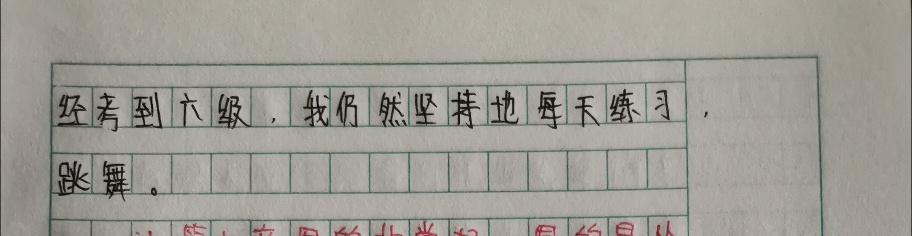 经考到六级，我仍然坚持地每天练习，
跳舞。